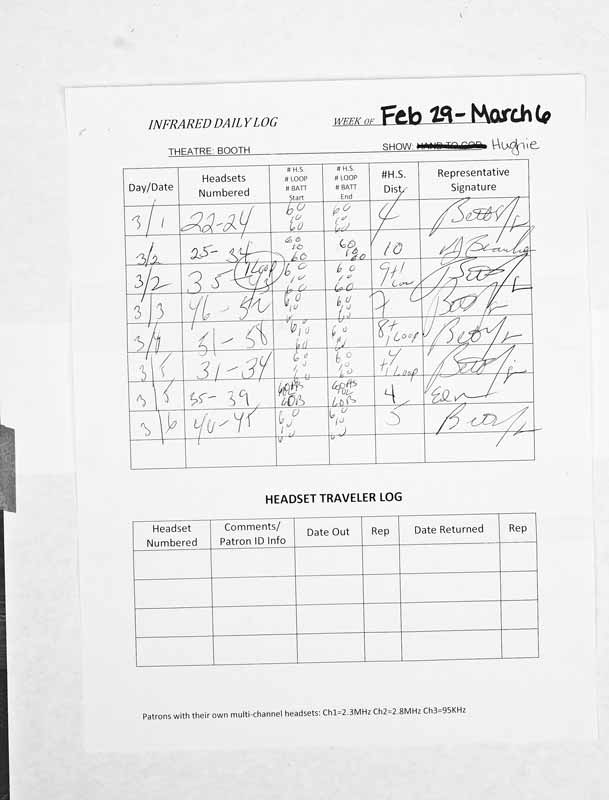 INFRARED DAILY LOG WEEK OF Feb 29-March 6
THEATRE: BOOTH SHOW: HAND TO GOD Hughie
Day/Date Headsets Numbered # H.S. # LOOP # BATT Start # H.S. # LOOP # BATT End #H.S. Dist. Representative Signature
3/1 22-24 60 10 60 60 10 60 4
3/2 25-34 60 10 60 60 10 60 10
3/2 35 1 Loop 60 10 60 60 10 60 9+1 Loop
3/3 60 10 60 60 10 60 7
3/4 51-58 60 10 60 60 10 60 8+1 Loop
3/5 31-34 60 10 60 60 10 60 4+1 Loop
3/5 35-39 60HS 10L 60B 60HS 10L 60B 4
3/6 40-45 60 10 60 60 10 60 5
HEADSET TRAVELER LOG
Headset Numbered Comments/ Patron ID Info Date Out Rep Date Returned Rep
Patrons with their own multi-channel headsets: Ch1=2.3MHz Ch2=2.8MHz Ch3=95KHz